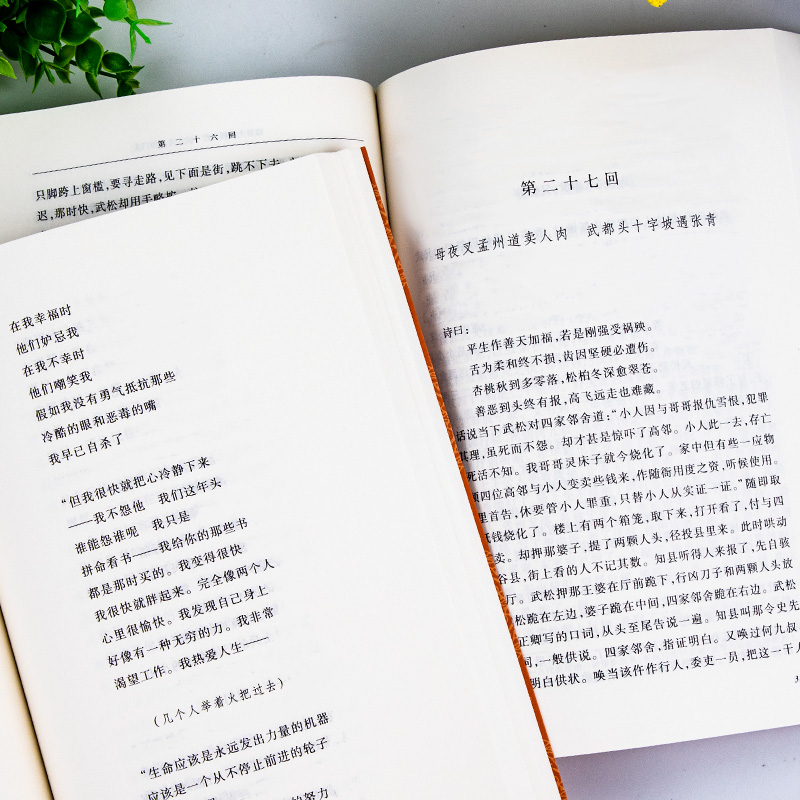 第二十六回
只脚跨上窗槛,要寻走路,见下面是街,跳不下去
迟,那时快,武松却用手略按
在我幸福时
他们妒忌我
在我不幸时
他们嘲笑我
假如我没有勇气抵抗那些
冷酷的眼和恶毒的嘴
我早已自杀了
“但我很快就把心冷静下来
——我不怨他 我们这年头
谁能怨谁呢 我只是
拼命看书——我给你的那些书
都是那时买的。我变得很快
我很快就胖起来。完全像两个人
心里很愉快。我发现自己身上
好像有一种无穷的力。我非常
渴望工作。我热爱人生——
(几个人举着火把过去)
“生命应该是永远发出力量的机器
应该是一个从不停止前进的轮子
的努力
第二十七回
母夜叉孟州道卖人肉 武都头十字坡遇张青
诗曰:
平生作善天加福,若是刚强受祸殃。
舌为柔和终不损,齿因坚硬必遭伤。
杏桃秋到多零落,松柏冬深愈翠苍。
善恶到头终有报,高飞远走也难藏。
话说当下武松对四家邻舍道:“小人因与哥哥报仇雪恨,犯罪
其理,虽死而不怨。却才甚是惊吓了高邻。小人此一去,存亡
死活不知。我哥哥灵床子就今烧化了。家中但有些一应物
四位高邻与小人变卖些钱来,作随衙用度之资,听候使用。
里首告,休要管小人罪重,只替小人从实证一证。”随即取
纸钱烧化了。楼上有两个箱笼,取下来,打开看了,付与四
卖。却押那婆子,提了两颗人头,径投县里来。此时哄动
谷县,街上看的人不记其数。知县听得人来报了,先自骇
厅。武松押那王婆在厅前跪下,行凶刀子和两颗人头放
松跪在左边,婆子跪在中间,四家邻舍跪在右边。武松
正卿写的口词,从头至尾告说一遍。知县叫那令史先
词,一般供说。四家邻舍,指证明白。又唤过何九叔
明白供状。唤当该仵作行人,委吏一员,把这一干人